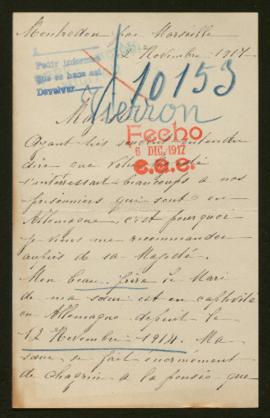 Montredon par Marseille
2 Novembre 1917
Pedir informes
que se hace así
Devolver
10153
Pierron
Ayant très souvent entendre
Fecho
6 DIC. 1917
C.a.C.
dire que
s'intéressait beaucoups a nos
prisonniers qui sont en
Allemagne, c'est pourquoi
je vous me recommander
auprès de sa Majesté.
Mon beau frère le Mari
de ma sœur est en captivité
en Allemagne depuit le
12 Novembre 1914. Ma
sœur se fait énormément
de chagrin a la pensée que